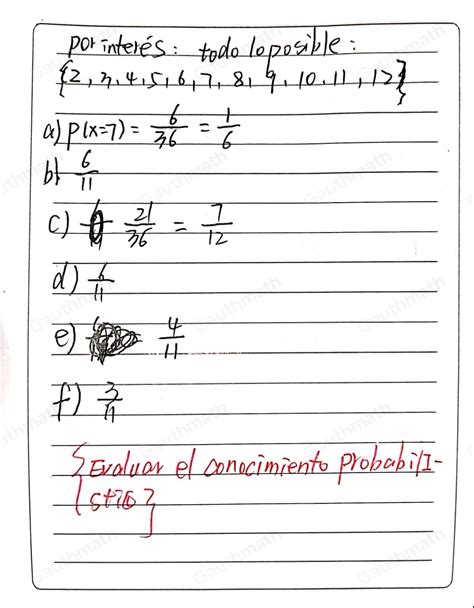 por interés: todo lo posible:
{2, 3, 4, 5, 6, 7, 8, 9, 10, 11, 12}
a) P(x=7) = 6/36 = 1/6
b) 6/11
c) 21/36 = 7/12
d) 6/11
e) 4/11
f) 3/11
{Evaluar el conocimiento probabilí-
stico}
Gauthmath